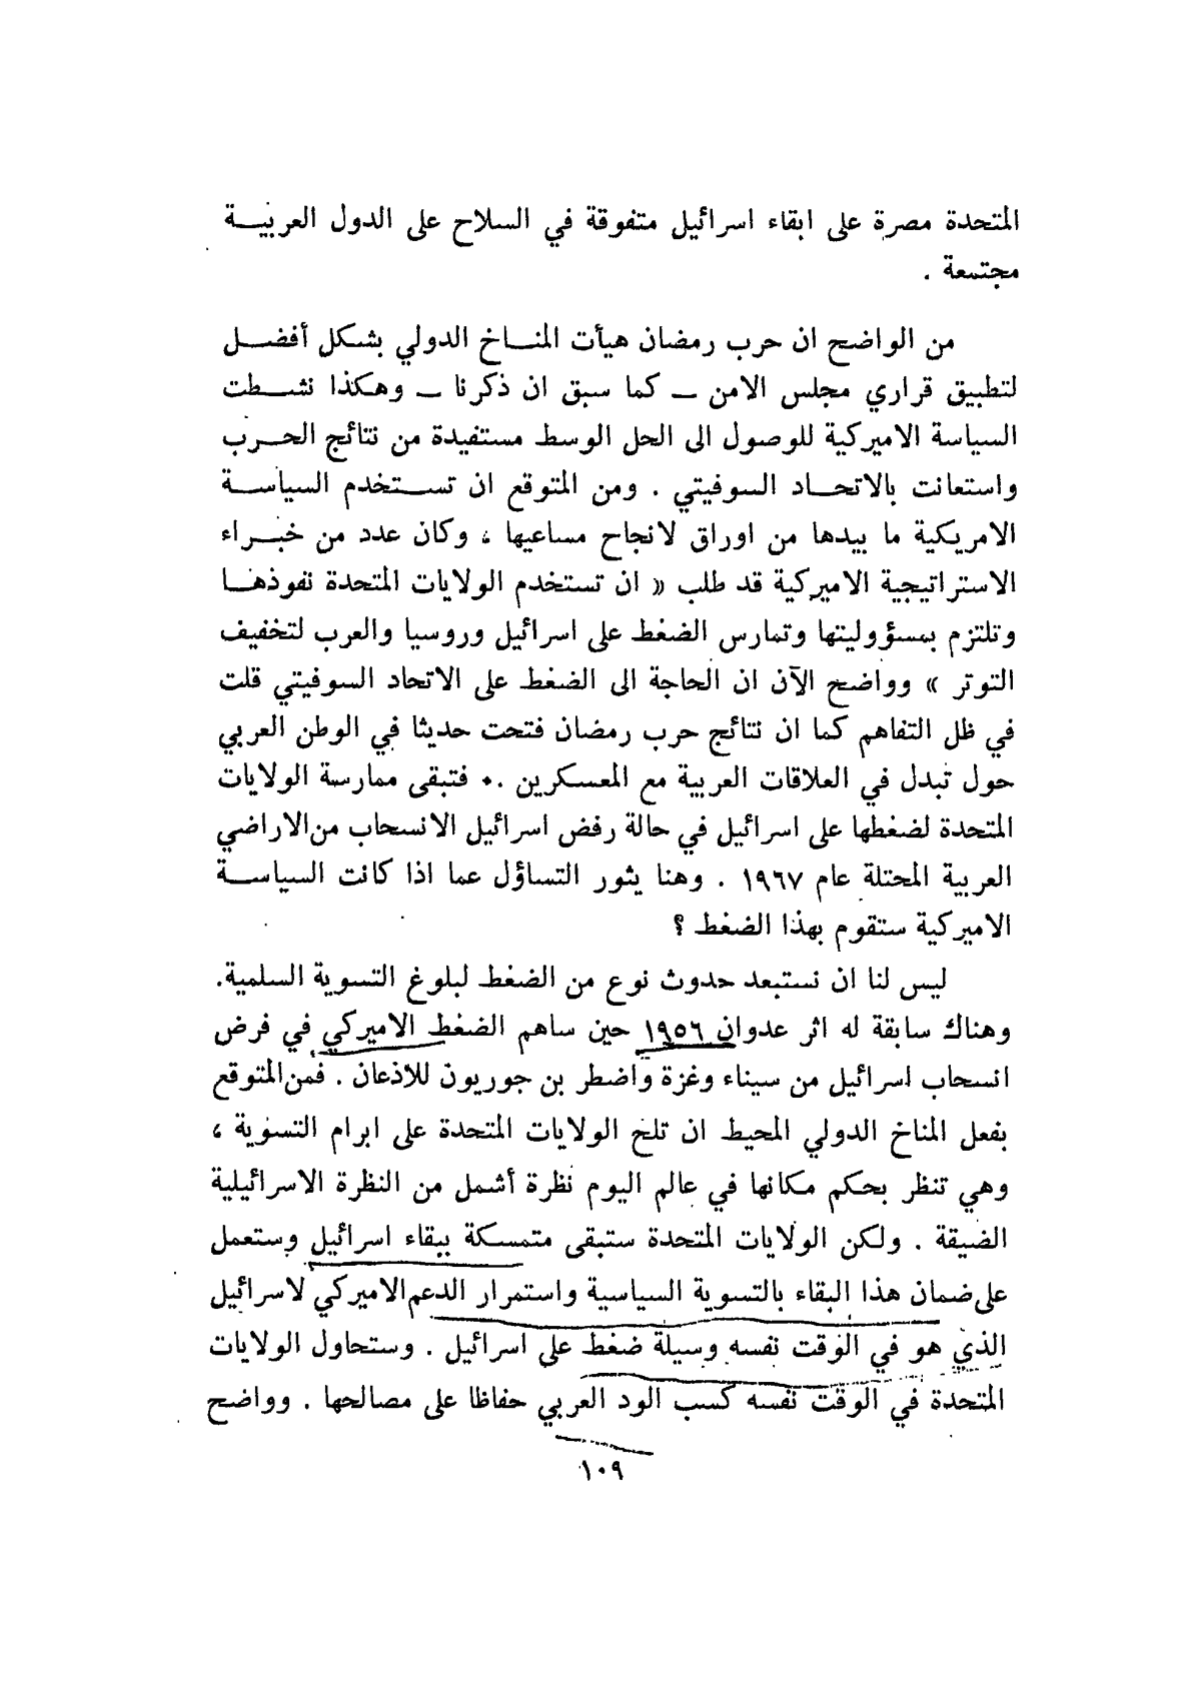 المتحدة مصرة على ابقاء اسرائيل متفوقة في السلاح على الدول العربيـــة
مجتمعة .
من الواضح ان حرب رمضان هيأت المنـــاخ الدولي بشكل أفضـــل
لتطبيق قراري مجلس الامن ــ كما سبق ان ذكرنا ــ وهكذا نشـــطت
السياسة الاميركية للوصول الى الحل الوسط مستفيدة من نتائج الحـــرب
واستعانت بالاتحـــاد السوفيتي . ومن المتوقع ان تســـتخدم السياســـة
الامريكية ما بيدها من اوراق لانجاح مساعيها ، وكان عدد من خبـــراء
الاستراتيجية الاميركية قد طلب « ان تستخدم الولايات المتحدة نفوذهـــا
وتلتزم بمسؤوليتها وتمارس الضغط على اسرائيل وروسيا والعرب لتخفيف
التوتر » وواضح الآن ان الحاجة الى الضغط على الاتحاد السوفيتي قلت
في ظل التفاهم كما ان نتائج حرب رمضان فتحت حديثا في الوطن العربي
حول تبدل في العلاقات العربية مع المعسكرين .. فتبقى ممارسة الولايات
المتحدة لضغطها على اسرائيل في حالة رفض اسرائيل الانسحاب من الاراضي
العربية المحتلة عام ١٩٦٧ . وهنا يثور التساؤل عما اذا كانت السياســـة
الاميركية ستقوم بهذا الضغط ؟
ليس لنا ان نستبعد حدوث نوع من الضغط لبلوغ التسوية السلمية.
وهناك سابقة له اثر عدوان ١٩٥٦ حين ساهم الضغط الاميركي في فرض
انسحاب اسرائيل من سيناء وغزة واضطر بن جوريون للاذعان . فمن المتوقع
بفعل المناخ الدولي المحيط ان تلح الولايات المتحدة على ابرام التسوية ،
وهي تنظر بحكم مكانها في عالم اليوم نظرة أشمل من النظرة الاسرائيلية
الضيقة . ولكن الولايات المتحدة ستبقى متمسكة ببقاء اسرائيل وستعمل
على ضمان هذا البقاء بالتسوية السياسية واستمرار الدعم الاميركي لاسرائيل
الذي هو في الوقت نفسه وسيلة ضغط على اسرائيل . وستحاول الولايات
المتحدة في الوقت نفسه كسب الود العربي حفاظا على مصالحها . وواضح
١٠٩